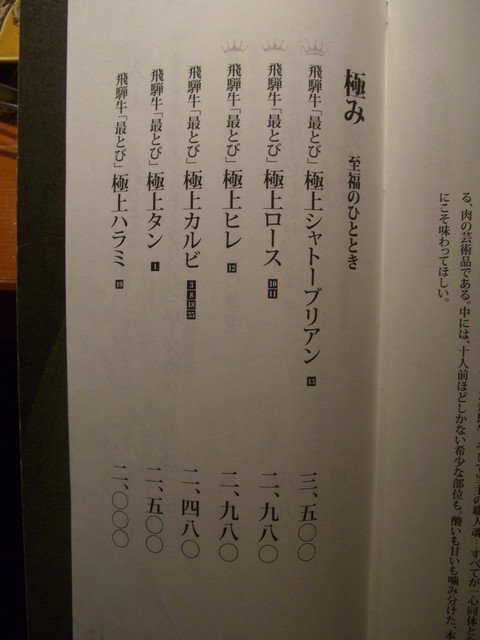 る、肉の芸術品である。中には、十人前ほどしかない希少な部位も。酸いも甘いも噛み分けた、
にこそ味わってほしい。
極み 至福のひととき
飛騨牛「最とび」極上シャトーブリアン 13 三、五〇〇
飛騨牛「最とび」極上ロース 10 11 二、九八〇
飛騨牛「最とび」極上ヒレ 12 二、九八〇
飛騨牛「最とび」極上カルビ 3 8 18 35 二、四八〇
飛騨牛「最とび」極上タン 1 二、五〇〇
飛騨牛「最とび」極上ハラミ 19 二、〇〇〇